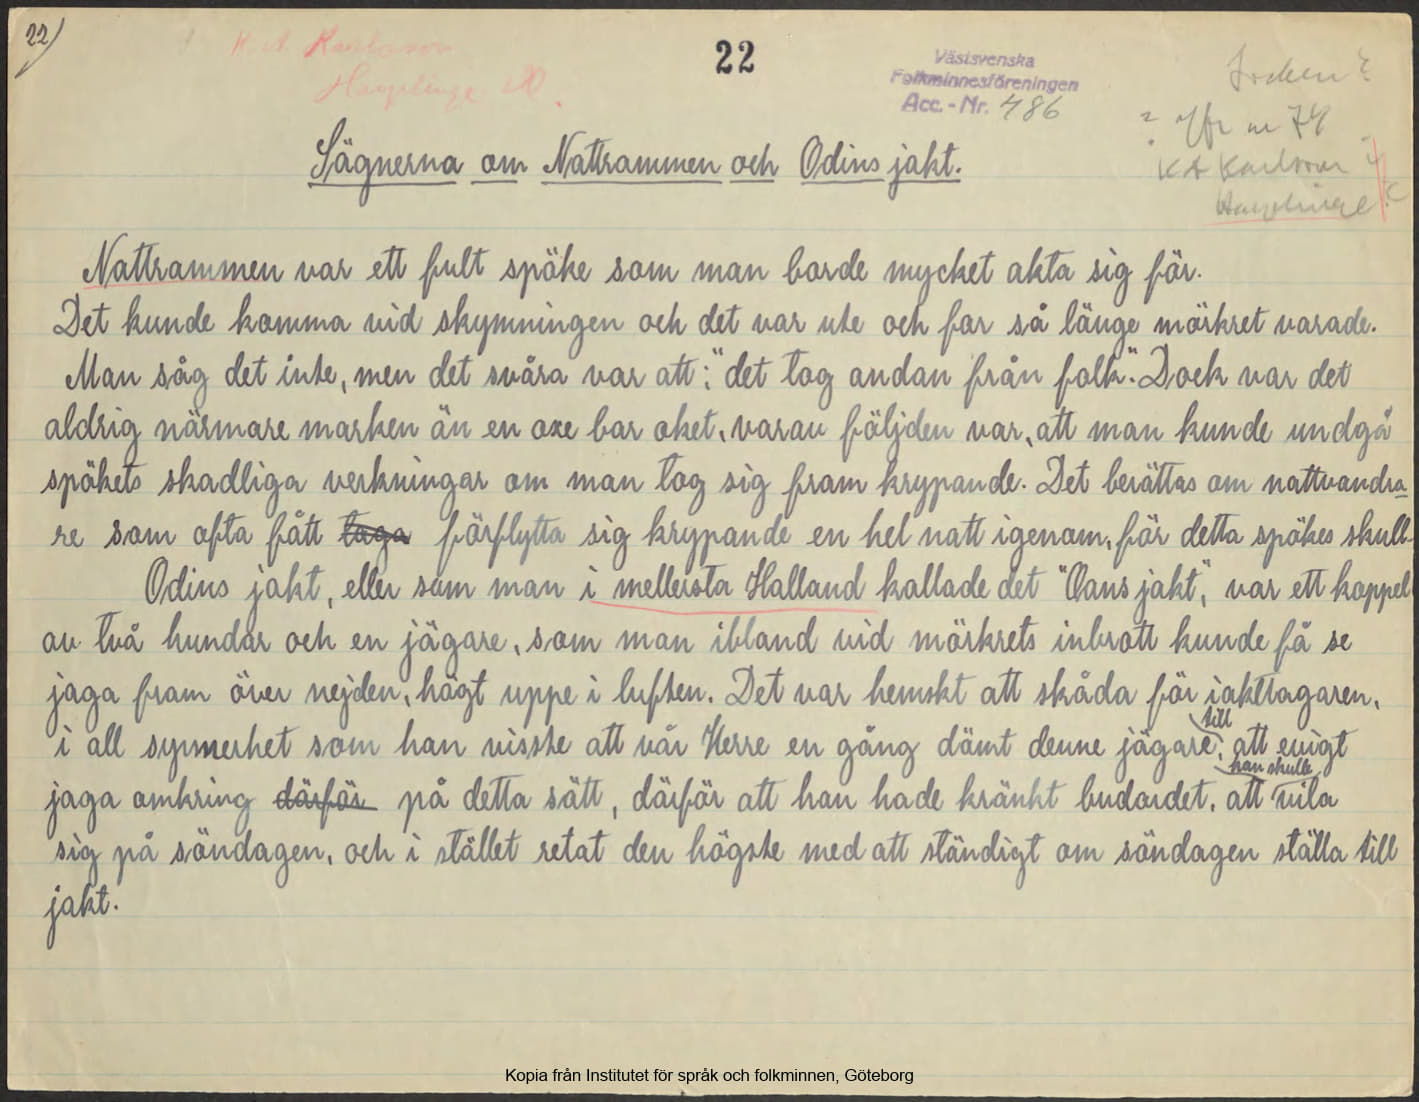 22)
22
K. A. Karlsson
Harplinge
Västsvenska
Folkminnesföreningen
Acc. - Nr. 486
Socken?
? Jfr nr 74
K A Karlsson
Harplinge
Sägnerna om Nattrammen och Odins jakt.
Nattrammen var ett fult spöke som man borde mycket akta sig för.
Det kunde komma vid skymningen och det var ute och for så länge mörkret varade.
Man såg det inte, men det svåra var att: "det tog andan från folk". Dock var det
aldrig närmare marken än en oxe bar oket, varav följden var, att man kunde undgå
spökets skadliga verkningar om man tog sig fram krypande. Det berättas om nattvandra-
re som ofta fått taga förflytta sig krypande en hel natt igenom, för detta spökes skull.
Odins jakt, eller som man i mellersta Halland kallade det "Oans jakt", var ett koppel
av två hundar och en jägare, som man ibland vid mörkrets inbrott kunde få se
jaga fram över nejden, högt uppe i luften. Det var hemskt att skåda för iakttagaren,
i all synnerhet som han visste att vår Herre en gång dömt denne jägare till att evigt
jaga omkring därför på detta sätt, därför att han hade kränkt budordet, att han skulle vila
sig på söndagen, och i stället retat den högste med att ständigt om söndagen ställa till
jakt.
Kopia från Institutet för språk och folkminnen, Göteborg